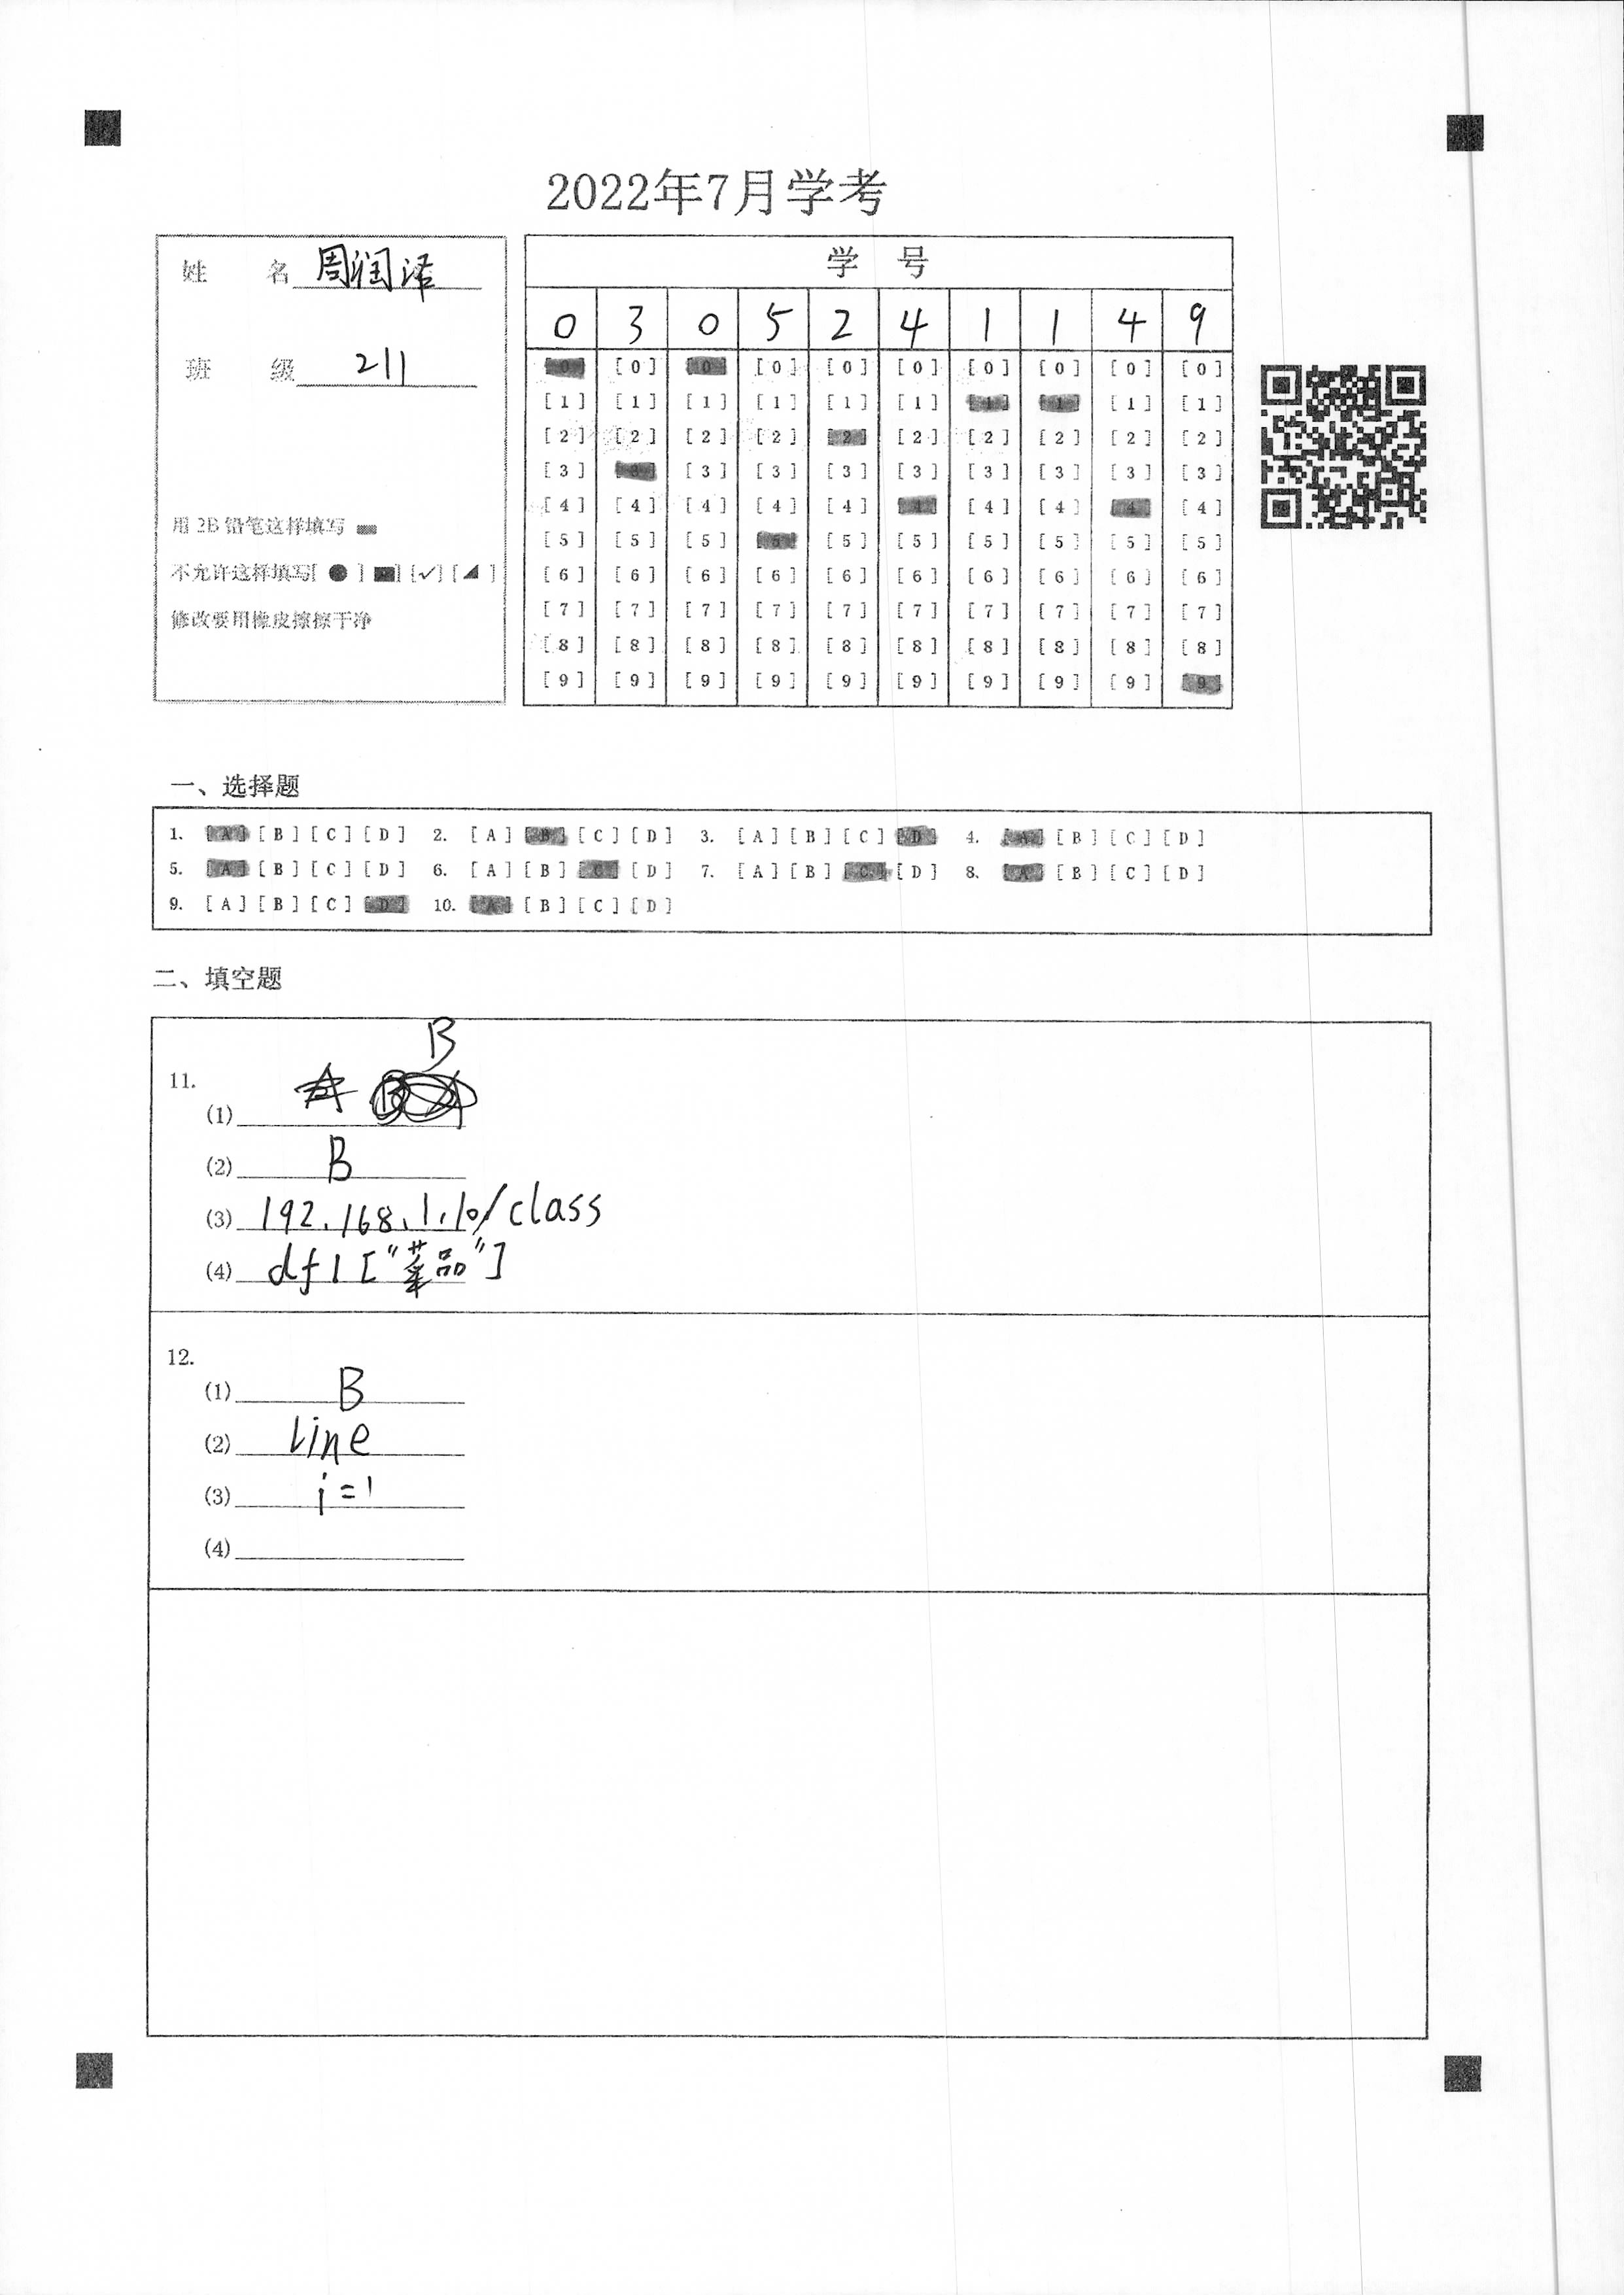 2022年7月学考
姓 名 周润泽
班 级 211
用 2B 铅笔这样填写
不允许这样填写[ ● ] [■] [✓] [◢ ]
修改要用橡皮擦擦干净
学 号
0 3 0 5 2 4 1 1 4 9
[0] [0] [0] [0] [0] [0] [0] [0] [0] [0]
[1] [1] [1] [1] [1] [1] [1] [1] [1] [1]
[2] [2] [2] [2] [2] [2] [2] [2] [2] [2]
[3] [3] [3] [3] [3] [3] [3] [3] [3] [3]
[4] [4] [4] [4] [4] [4] [4] [4] [4] [4]
[5] [5] [5] [5] [5] [5] [5] [5] [5] [5]
[6] [6] [6] [6] [6] [6] [6] [6] [6] [6]
[7] [7] [7] [7] [7] [7] [7] [7] [7] [7]
[8] [8] [8] [8] [8] [8] [8] [8] [8] [8]
[9] [9] [9] [9] [9] [9] [9] [9] [9] [9]
一、选择题
1. [A] [B] [C] [D] 2. [A] [B] [C] [D] 3. [A] [B] [C] [D] 4. [A] [B] [C] [D]
5. [A] [B] [C] [D] 6. [A] [B] [C] [D] 7. [A] [B] [C] [D] 8. [A] [B] [C] [D]
9. [A] [B] [C] [D] 10. [A] [B] [C] [D]
二、填空题
11.
(1) B
(2) B
(3) 192.168.1.10/class
(4) df1["菜品"]
12.
(1) B
(2) line
(3) i=1
(4)